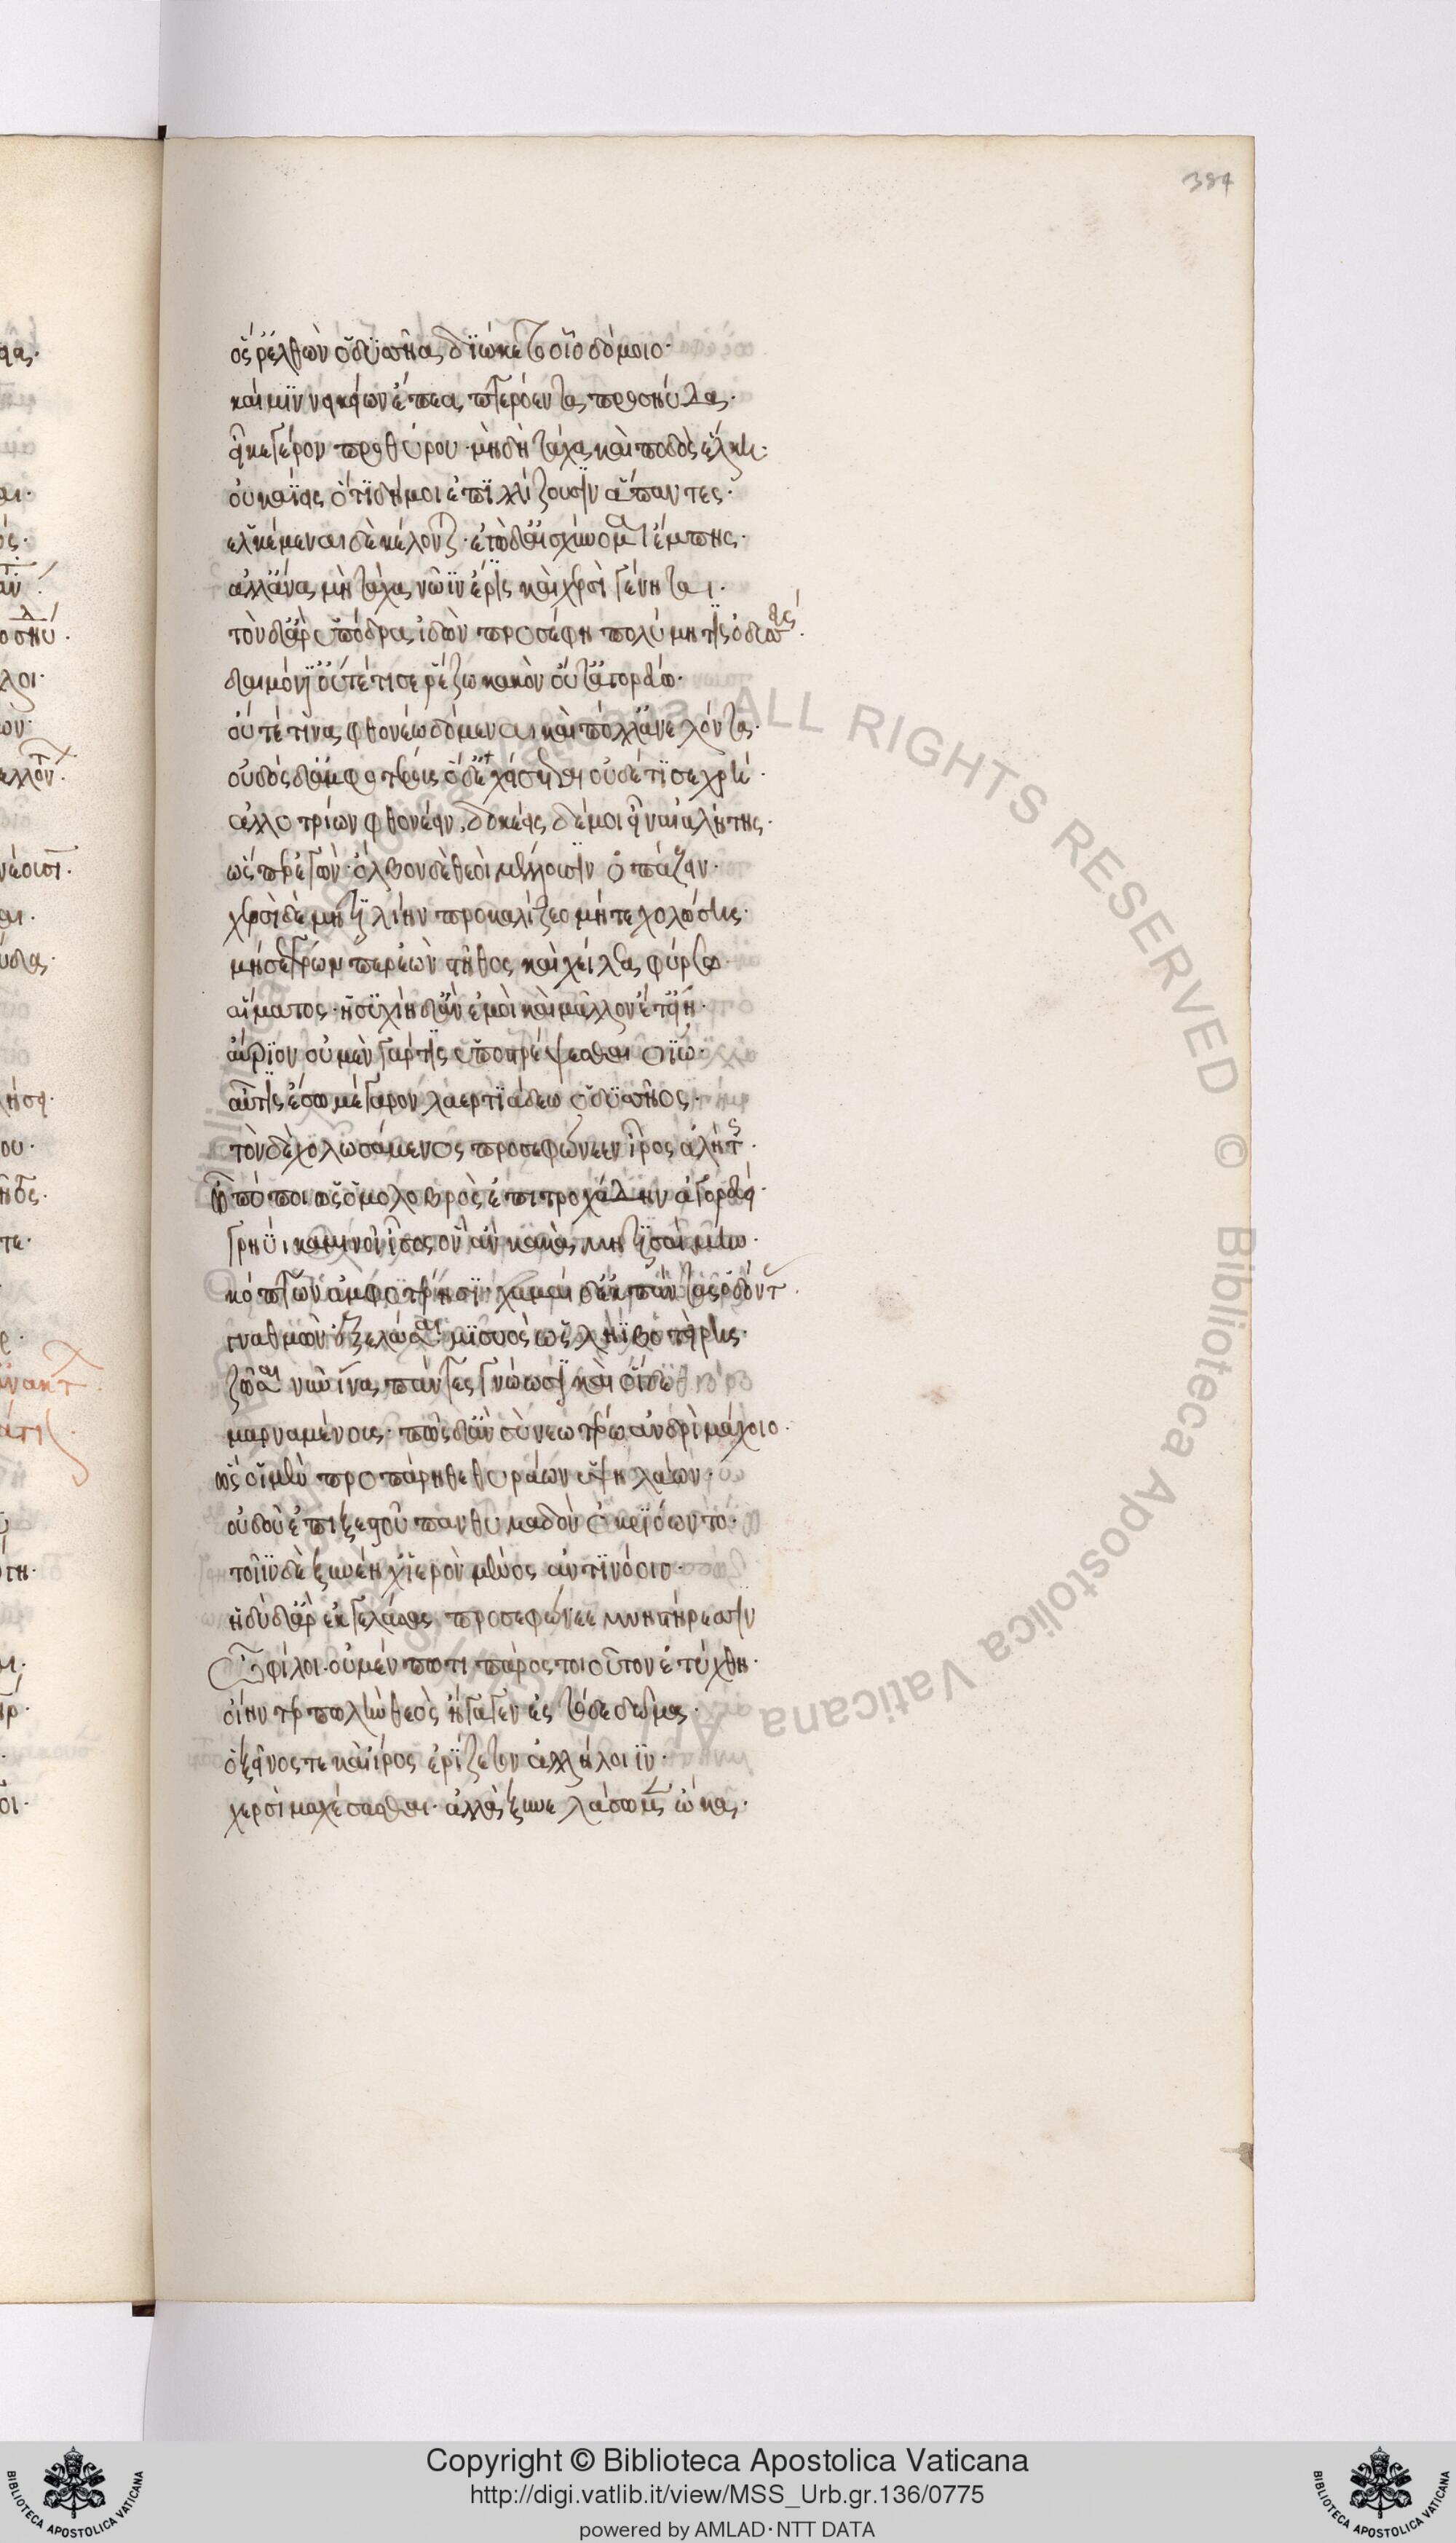 384
ὅς ῥ' ἐλθὼν ὀδυσσῆα διώκετο οἷο δόμοιο·
καί μιν νεικείων ἔπεα πτερόεντα προσηύδα·
εἶκε γέρον προθύρου· μὴ δὴ τάχα καὶ ποδὸς ἕλκῃ·
οὐκ ἀΐεις ὅτι δή μοι ἐπιλλίζουσιν ἅπαντες·
ἑλκέμεναι δὲ κέλονται· ἐγὼ δ' αἰσχύνομαι ἔμπης·
ἀλλ' ἄνα μὴ τάχα νῶϊν ἔρις καὶ χερσὶ γένηται·
τὸν δ' ἄρ' ὑπόδρα ἰδὼν προσέφη πολύμητις ὀδυσσεύς·
δαιμόνι' οὔτέ τί σε ῥέζω κακὸν οὔτ' ἀγορεύω·
οὔτέ τινα φθονέω δόμεναι καὶ πόλλ' ἀνελόντα·
οὐδὸς δ' ἀμφοτέρους ὅδε χείσεται οὐδέ τί σε χρὴ·
ἀλλοτρίων φθονέειν, δοκέεις δέ μοι εἶναι ἀλήτης·
ὥς περ ἐγών· ὄλβον δὲ θεοὶ μέλλουσιν ὀπάζειν·
χερσὶ δὲ μή τι λίην προκαλίζεο μή με χολώσῃς·
μή σε γέρων περ ἐὼν στῆθος καὶ χείλεα φύρσω·
αἵματος· ἡσυχίη δ' ἂν ἐμοὶ καὶ μᾶλλον ἔτ' εἴη·
αὔριον οὐ μὲν γάρ τί σ' ὑποστρέψεσθαι ὀΐω·
αὖτις ἔσω μέγαρον λαερτιάδεω ὀδυσσῆος·
τὸν δὲ χολωσάμενος προσεφώνεεν ἶρος ἀλήτης·
ὢ πόποι ὡς ὁ μολοβρὸς ἐπιτροχάδην ἀγορεύει·
γρηῒ καμινοῖ ἶσος ὃν ἂν κακὰ μητισαίμην·
κόπτων ἀμφοτέρῃσι· χαμαὶ δέ κε πάντας ὀδόντας·
γναθμῶν ἐξελάσαιμι συὸς ὣς ληϊβοτείρης·
ζῶσαι νῦν ἵνα πάντες γνώωσι καὶ οἵδε
μαρναμένους· πῶς δ' ἂν σὺ νεωτέρῳ ἀνδρὶ μάχοιο·
ὣς οἱ μὲν προπάροιθε θυράων ὑψηλάων·
οὐδοῦ ἔπι ξεστοῦ πανθυμαδὸν ὀκριόωντο·
τοῖιν δὲ ξυνέηχ' ἱερὸν μένος ἀντινόοιο·
ἡδὺ δ' ἄρ' ἐκγελάσας προσεφώνεε μνηστήρεσσιν
ὦ φίλοι· οὐ μέν πώ τι πάρος τοιοῦτον ἐτύχθη·
οἵην τερπωλὴν θεὸς ἤγαγεν ἐς τόδε δῶμα·
ὁ ξεῖνός τε καὶ ἶρος ἐρίζετον ἀλλήλοιϊν·
χερσὶ μαχέσασθαι· ἀλλὰ ξυνελάσσομεν ὦκα·
ALL RIGHTS RESERVED © Biblioteca Apostolica Vaticana
Copyright © Biblioteca Apostolica Vaticana
http://digi.vatlib.it/view/MSS_Urb.gr.136/0775
powered by AMLAD·NTT DATA
BIBLIOTECA APOSTOLICA VATICANA
BIBLIOTECA APOSTOLICA VATICANA